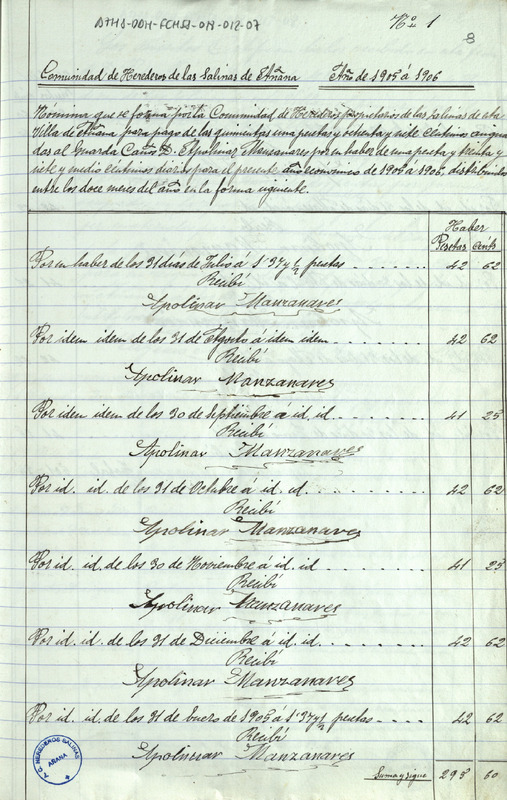 ATHA-DDH-FCHSA-019-012-07
Nº 1
8
Comunidad de Herederos de las Salinas de Añana Año de 1905 á 1906
Nómina que se forma por la Comunidad de Herederos propietarios de las Salinas de esta
Villa de Añana para pago de las quinientas una pesetas y ochenta y siete céntimos asigna
das al Guarda Caños D. Apolinar Manzanares por su haber de una peseta y treinta y
siete y medio céntimos diarios para el presente año económico de 1905 á 1906, distribuidas
entre los doce meses del año en la forma siguiente.
Haber
Pesetas Cénts
Por su haber de los 31 dias de Julio á 1'37 y ½ pesetas 42 62
Recibí
Apolinar Manzanares
Por idem idem de los 31 de Agosto á idem idem 42 62
Recibí
Apolinar Manzanares
Por idem idem de los 30 de Septiembre a id. id. 41 25
Recibí
Apolinar Manzanares
Por id. id. de los 31 de Octubre á id. id. 42 62
Recibí
Apolinar Manzanares
Por id. id. de los 30 de Noviembre á id. id 41 25
Recibí
Apolinar Manzanares
Por id. id. de los 31 de Diciembre á id. id. 42 62
Recibí
Apolinar Manzanares
Por id. id. de los 31 de Enero de 1905 á 1'37 y ½ pesetas 42 62
Recibí
Apolinar Manzanares
Suma y sigue 295 60
HEREDEROS SALINAS
AÑANA